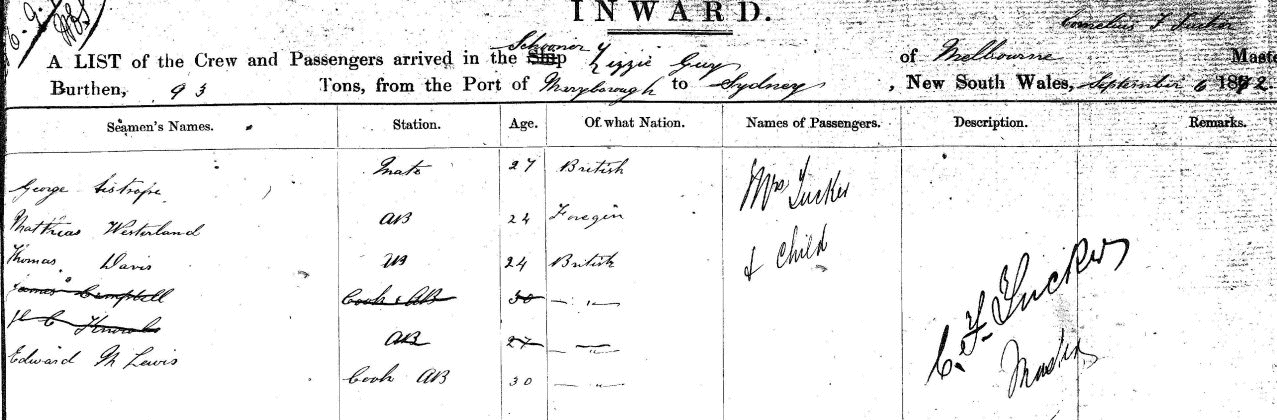 INWARD.
Cornelius F Tucker
A LIST of the Crew and Passengers arrived in the Ship Schooner Lizzie Guy of Melbourne Maste
Burthen, 93 Tons, from the Port of Maryborough to Sydney, New South Wales, September 6 1872
Seamen's Names. Station. Age. Of what Nation. Names of Passengers. Description. Remarks.
George Mate 27 British Mrs Tucker
Matthias Westerland AB 24 Foregin
Thomas Davis AB 24 British & Child
James Campbell Cook & AB 30 — " —
AB 27 — " —
Edward M Lewis Cook AB 30 — " —
C. F. Tucker
Master